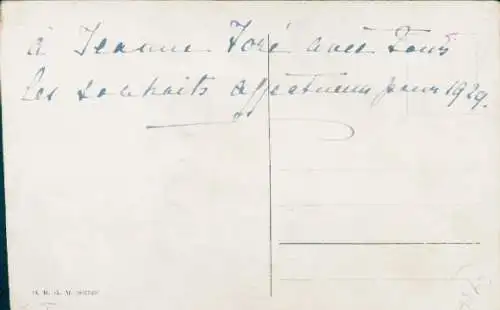 à Jeanne Foré avec tous
les souhaits affectueux pour 1929.